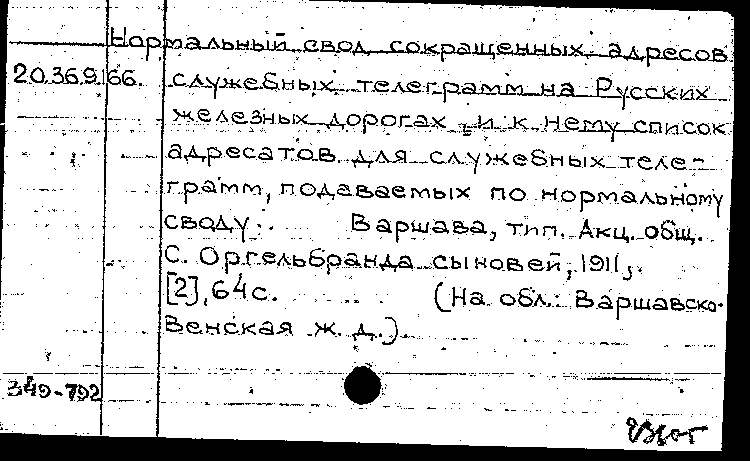 Нормальный свод сокращенных адресов
20.369.66. служебных телеграмм на Русских
железных дорогах и к нему список
адресатов для служебных теле-
грамм, подаваемых по нормальному
своду. Варшава, тип. Акц. общ.
С. Оргельбранда сыновей, 1911,
[2], 64с. (На обл.: Варшавско-
Венская ж. д.).
349-792